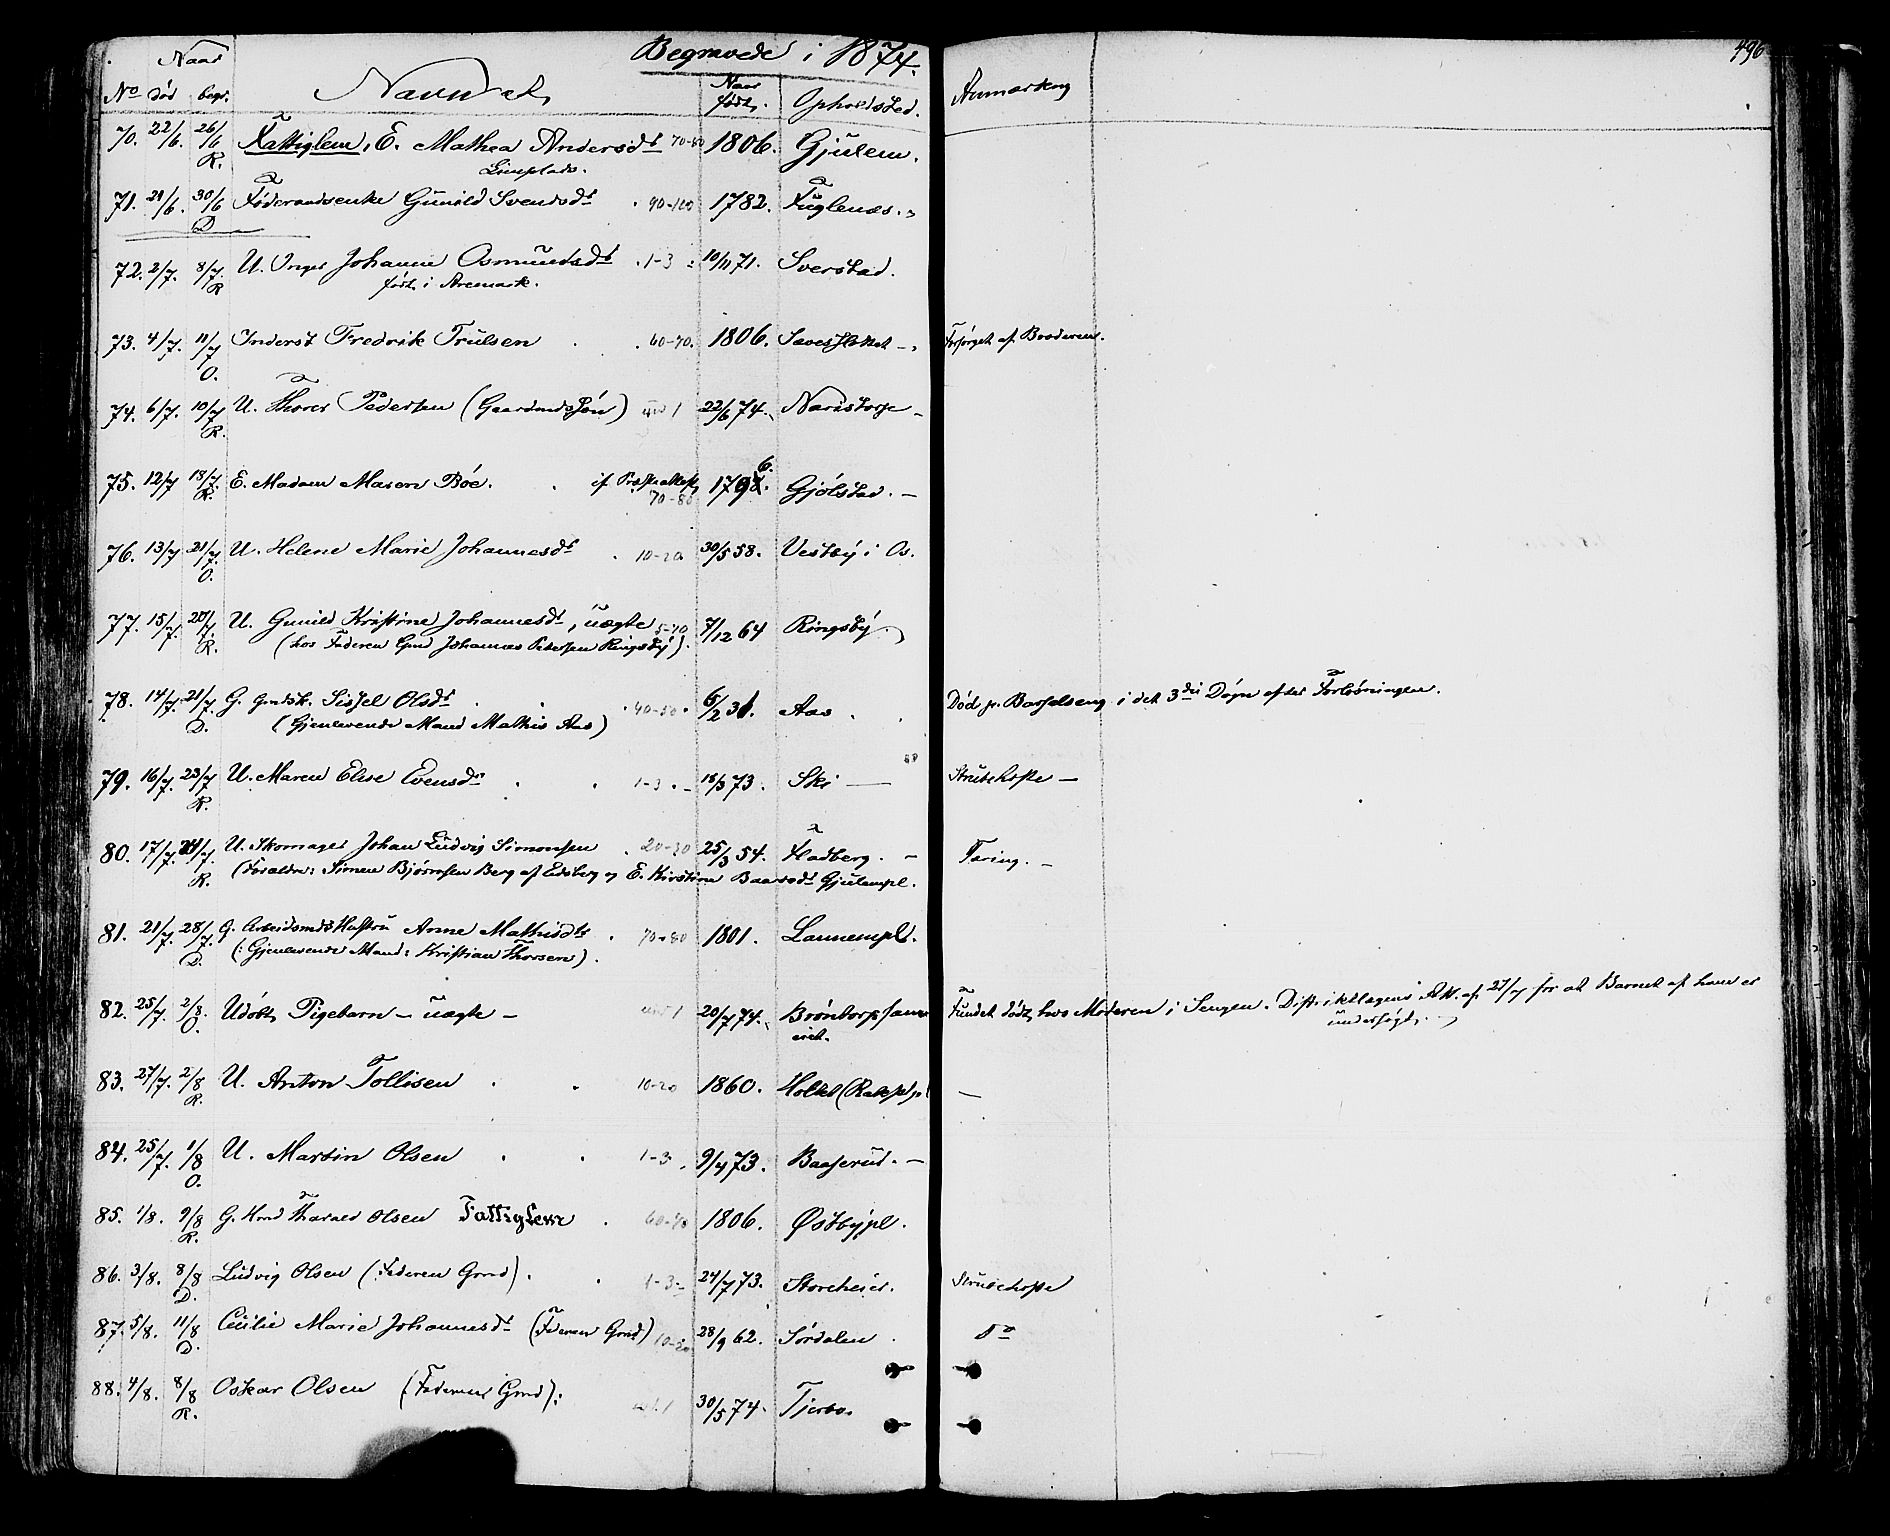 Begravede i 1874.
496
Naar
No død begr. Navn etc. Naar født. Opholdsted. Anmærkning
70. 22/6. 26/6 R. Fattiglem, E. Mathea Andersdt 70-80 1806. Gjulem.
71. 21/6. 30/6 D Føderaadsenke Gunild Svendsdt 90-100 1782. Fuglenæs.
72. 2/7. 8/7. R U. Inger Johanne Osmundsdt 1-3 10/11 71. Sverstad.
født i Aremark.
73. 4/7. 11/7 O. Inderst Fredrik Trulsen 60-70. 1806. Forsørget af Broderen.
74. 6/7. 10/7 R. U. Thorer Pedersen (Gaardmdssøn) und 1 22/6 74. Narvestorp
75. 12/7 18/7. R. E. Madam Maren Bøe. if. Præsteattest 70-80 1796. Gjølstad.
76. 13/7 21/7. O. U. Helene Marie Johannesdt 10-20 30/5 58. Vestby i Os.
77. 15/7. 20/7. R. U. Gunild Kristine Johannesdt, uægte 5-10 7/12 64 Ringsby.
(hos Faderen Gmd Johannes Petersen Ringsby).
78. 14/7. 21/7. D. G. Gmdsk. Sissel Olsdt 40-50. 6/2 31. Aas Død p. Barselseng i det 3die Døgn efter Forløsningen.
(Gjenlevende Mand Mathis Aas)
79. 16/7. 23/7 R. U. Maren Elise Evensdt 1-3 18/3 73. Ski Strubehoste
80. 17/7. 24/7. R. U. Skomager Johan Ludvig Simonsen 20-30 25/3 54. Fladberg. Tæring.
(Forældre: Simen Bjørnsen Berg af Eidsberg og E. Kirstine Baarsdt Gjulempl.
81. 21/7. 28/7. D. G. Arbeidsmds Hustru Anne Mathisdt 70-80 1801. Lannempl.
(: Gjenlevende Mand: Kristian Thorsen).
82. 25/7. 2/8. O. Udøbt Pigebarn - uægte - und 1 20/7 74. Brøntorpsaneriet. Fundet dødt hos Moderen i Sengen. Distriktslægens Att. af 27/7 for at Barnet af ham er
undersøgt.
83. 27/7. 2/8 R. U. Anton Tollisen 10-20 1860. Holtet (Raksp)
84. 25/7. 1/8 O. U. Martin Olsen 1-3 9/4 73. Baaserud.
85. 1/8. 9/8 R. G. Hmd Tharald Olsen Fattiglem 60-70 1806. Østbypl.
86. 3/8. 8/8 D. Ludvig Olsen (Faderen Gmd). 1-3 24/7 73. Storeheier. Strubehoste
87. 5/8. 11/8 D. Cecilie Marie Johannesdt (Faderen Gmd) 10-20 28/9 62. Sørdalen Do
88. 4/8. 8/8 R. Oskar Olsen (Faderen Gmd). und. 1 30/5 74. Tjerbo.